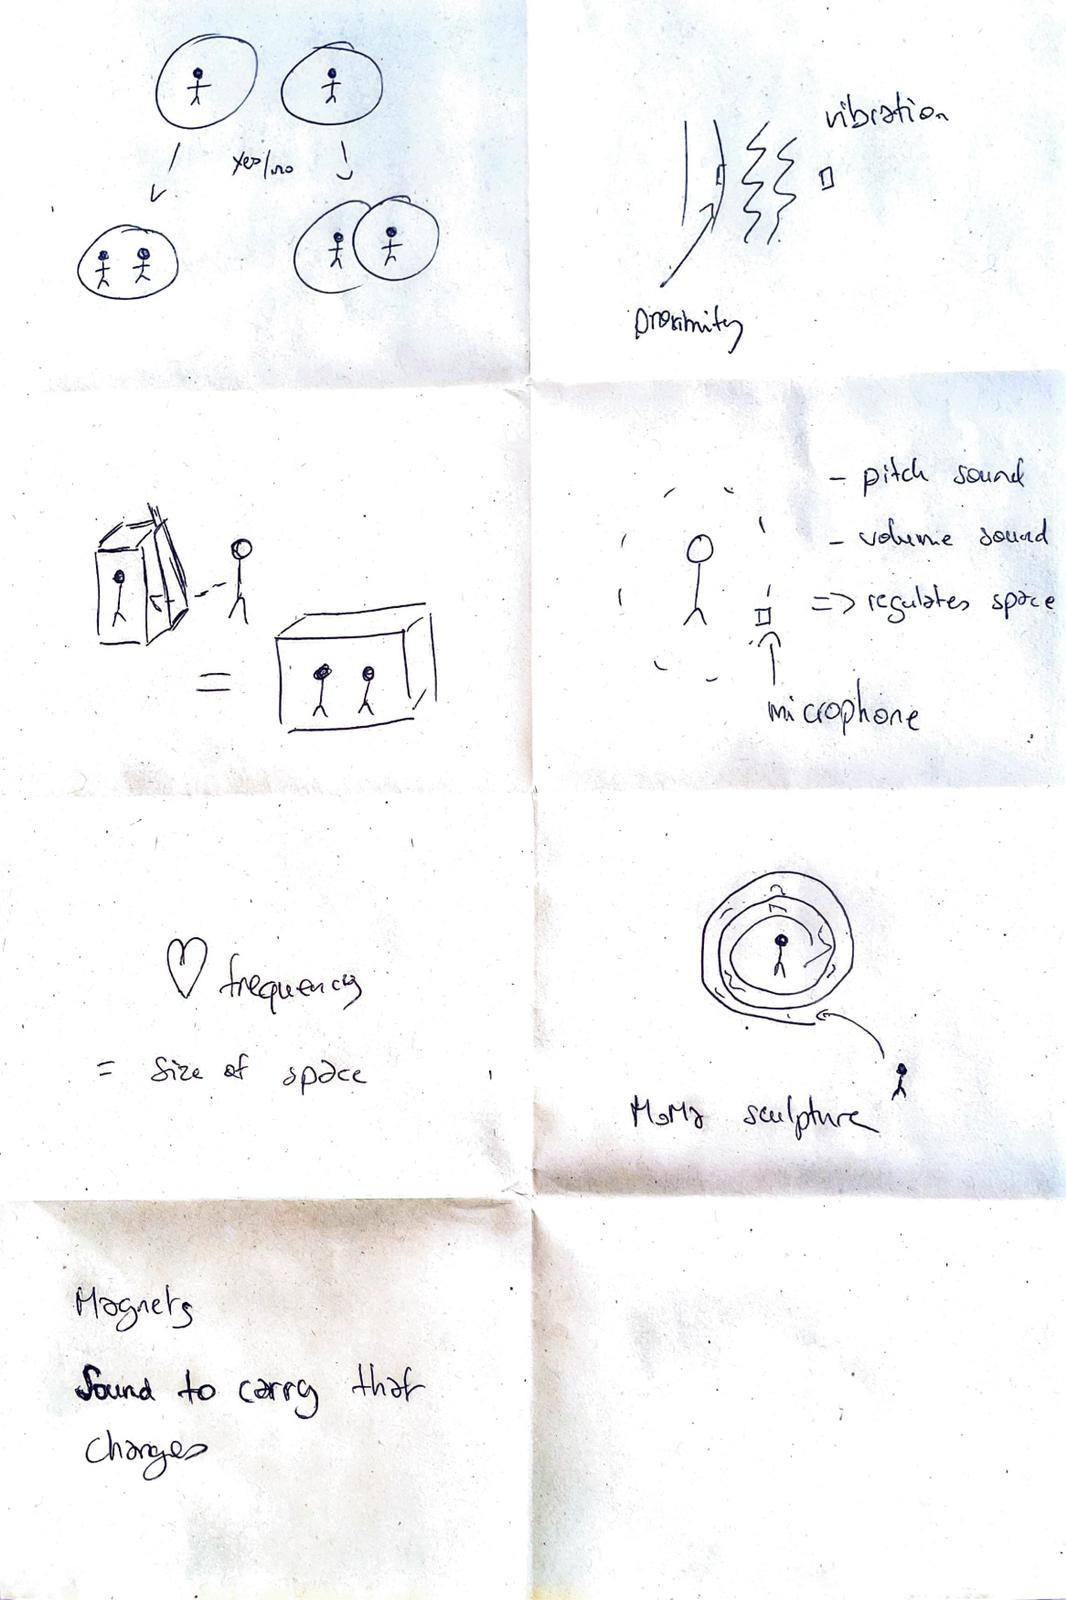 yes/no
vibration
proximity
- pitch sound
- volume sound
=> regulates space
microphone
=
♡ frequency
= size of space
MoMa sculpture
Magnets
Sound to carry that
changes